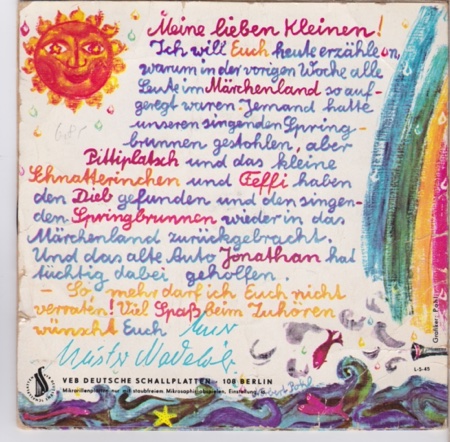 Meine lieben Kleinen!
Ich will Euch heute erzählen,
warum in der vorigen Woche alle
Leute im Märchenland so auf-
geregt waren. Jemand hatte
unseren singenden Spring-
brunnen gestohlen, aber
Pittiplatsch und das kleine
Schnatterinchen und Teffi haben
den Dieb gefunden und den singen-
den Springbrunnen wieder in das
Märchenland zurückgebracht.
Und das alte Auto Jonathan hat
tüchtig dabei geholfen.
- So mehr darf ich Euch nicht
verraten! Viel Spaß beim Zuhören
wünscht Euch Euer
Meister Nadelöhr
VEB DEUTSCHE SCHALLPLATTEN · 108 BERLIN
Mikrorillenplatten nur mit staubfreiem Mikrosaphir abspielen, Einstellung
L-5-45